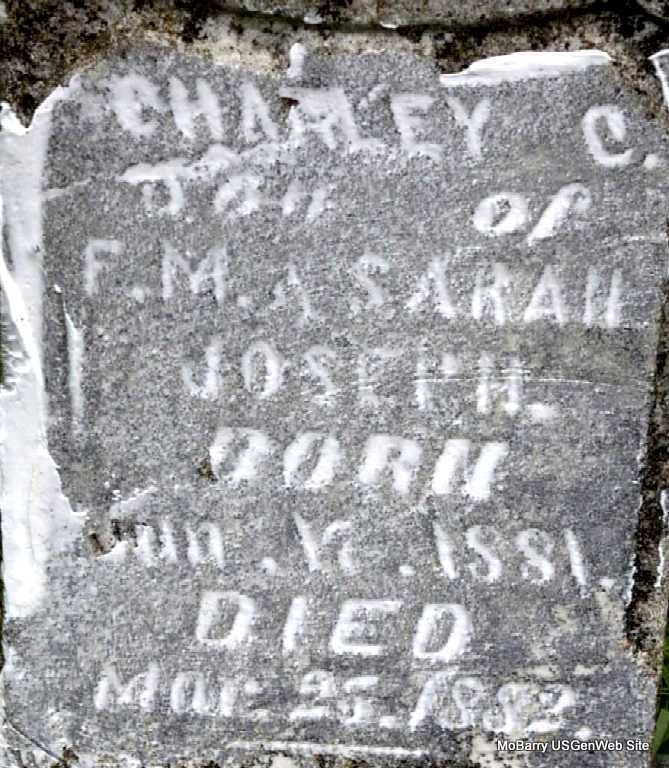 CHARLEY C.
Son of
F. M. & SARAH
JOSEPH.
BORN
Jun. 17. 1881.
DIED
Mar. 25. 1882.
MoBarry USGenWeb Site